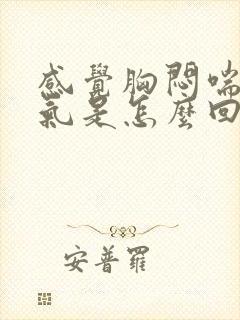 感覺胸悶喘
氣是怎麼回
安普羅